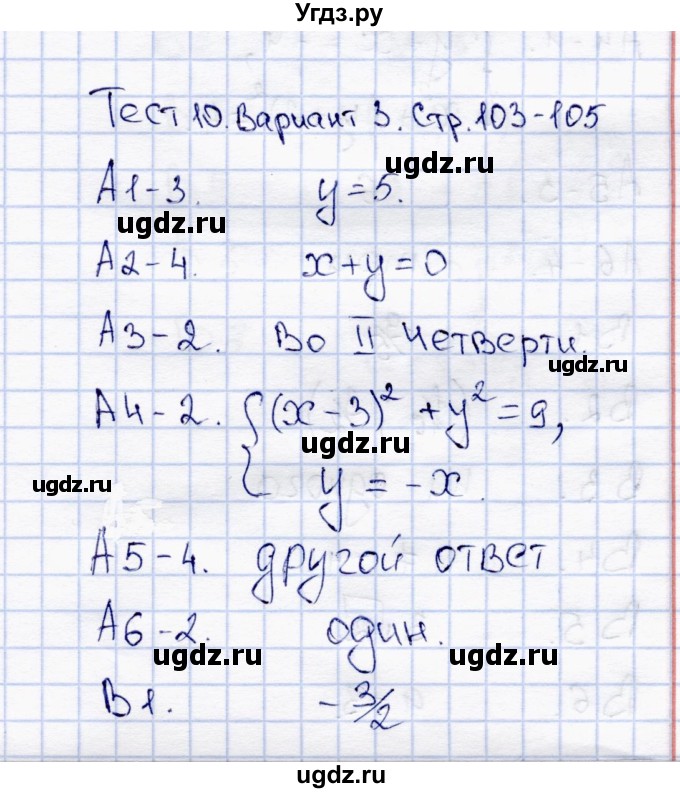 Угдз.ру
Тест 10. Вариант 3. Стр. 103-105
ugdz.ru
А1-3. y=5.
ugdz.ru
А2-4. x+y=0
А3-2. Во II четверти.
ugdz.ru
А4-2. { (x-3)² + y² = 9,
ugdz.ru
y = -x.
ugdz.ru
А5-4. другой ответ
А6-2. один.
ugdz.ru ugdz.ru
В1. -3/2
ugdz.ru